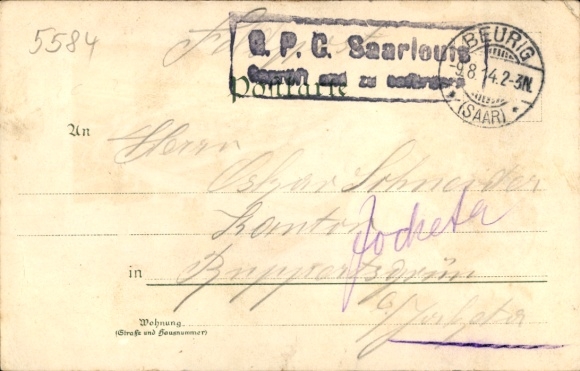 5584
Feldpost
G. P. C. Saarlouis
Geprüft und zu befördern
BEURIG
-9.8.14.2-3N.
* (SAAR) *
Postkarte
An
Herrn
Oskar Schneider
Kantor
Jocketa
in Ruppertsgrün
b/Jocketa
Wohnung
(Straße und Hausnummer)